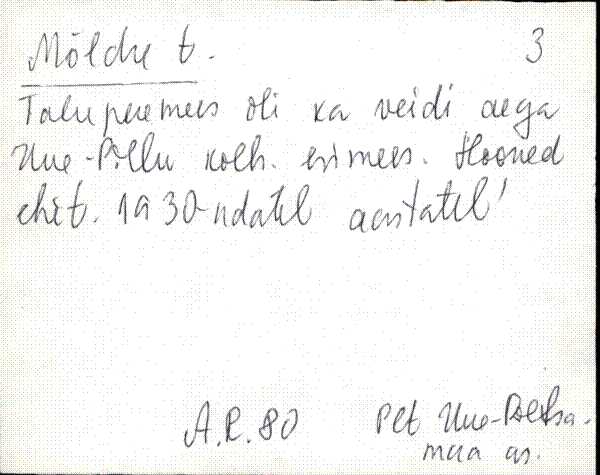 Möldre t. 3
Talu peremees oli ka veidi aega
Uue-Põllu kolh. esimees. Hooned
ehit. 1930-ndatel aastatel!
A.R. 80 Plt Uue-Põltsa-
maa as.